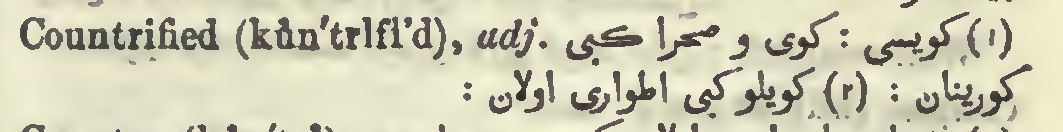 Countrified (kŭn′trĭfī′d), adj. (۱) كویسی : كوی و صحرا كبی
كورینان : (۲) كویلو كبی اطواری اولان :